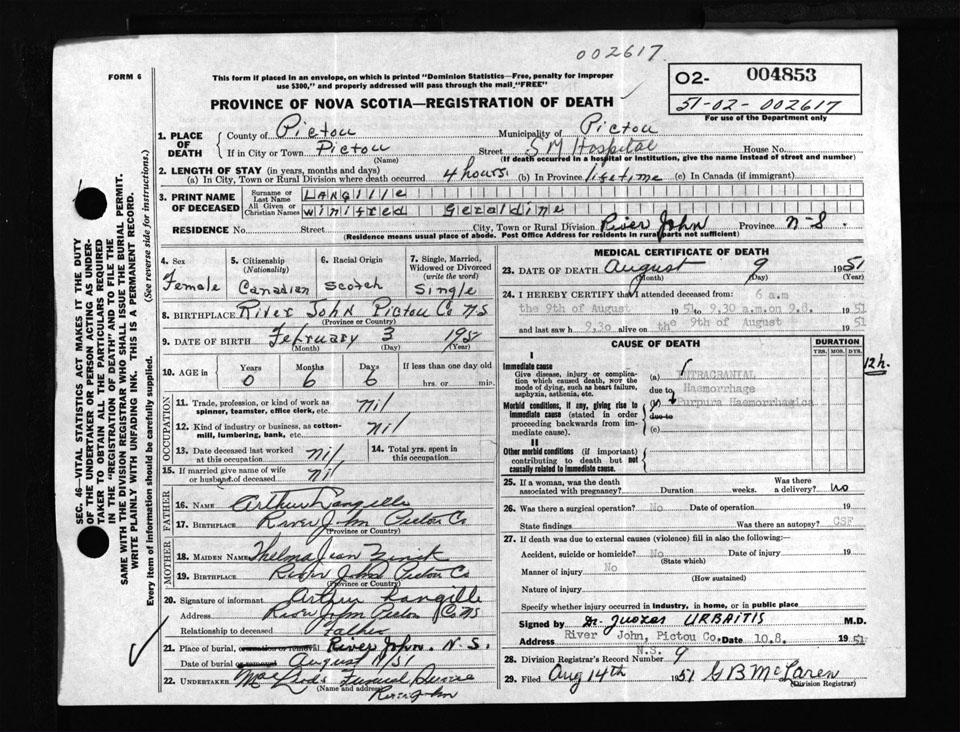 002617
FORM 6
This form if placed in an envelope, on which is printed "Dominion Statistics—Free, penalty for improper
use $300," and properly addressed will pass through the mail "FREE"
O2- 004853
51-02-002617
For use of the Department only
PROVINCE OF NOVA SCOTIA—REGISTRATION OF DEATH
1. PLACE OF DEATH { County of Pictou Municipality of Pictou
If in City or Town Pictou Street S M Hospital House No.
(Name) (If death occurred in a hospital or institution, give the name instead of street and number)
2. LENGTH OF STAY (in years, months and days)
(a) In City, Town or Rural Division where death occurred 4 hours (b) In Province lifetime (c) In Canada (if immigrant)
3. PRINT NAME OF DECEASED { Surname or Last Name LANGILLE
All Given or Christian Names Winifred Geraldine
RESIDENCE No. Street City, Town or Rural Division River John Province N-S.
(Residence means usual place of abode. Post Office Address for residents in rural parts not sufficient)
4. Sex 5. Citizenship (Nationality) 6. Racial Origin 7. Single, Married, Widowed or Divorced (write the word)
Female Canadian Scotch Single
8. BIRTHPLACE River John Pictou Co N.S
(Province or Country)
9. DATE OF BIRTH February 3 195
(Month) (Day) (Year)
10. AGE in { Years Months Days If less than one day old
0 6 6 hrs. or min.
OCCUPATION
11. Trade, profession, or kind of work as spinner, teamster, office clerk, etc. nil
12. Kind of industry or business, as cotton-mill, lumbering, bank, etc. nil
13. Date deceased last worked at this occupation nil 14. Total yrs. spent in this occupation
15. If married give name of wife or husband of deceased nil
FATHER
16. NAME Arthur Langille
17. BIRTHPLACE River John Pictou Co
(Province or Country)
MOTHER
18. MAIDEN NAME Thelma Jean
19. BIRTHPLACE River John Pictou Co
(Province or Country)
20. Signature of informant Arthur Langille
Address River John Pictou Co NS
Relationship to deceased Father
21. Place of burial, cremation or removal River John. N.S.
Date of burial or removal August 11/51
22. UNDERTAKER MacLeods Funeral Service
(Name and address) River John
MEDICAL CERTIFICATE OF DEATH
23. DATE OF DEATH August 9 1951
(Month) (Day) (Year)
24. I HEREBY CERTIFY that I attended deceased from 6 a.m
the 9th of August 1951 to 9.30 a.m. on 9.8. 1951
and last saw h 9.30 alive on the 9th of August 1951
CAUSE OF DEATH DURATION
YRS. MOS. DYS.
I
Immediate cause
Give disease, injury or complication which caused death, NOT the mode of dying, such as heart failure, asphyxia, asthenia, etc.
(a) INTRACRANIAL 12h.
due to, Haemorrhage
Morbid conditions, if any, giving rise to immediate cause (stated in order proceeding backwards from immediate cause).
(b) Purpura Haemorrhagica
due to
(c)
II
Other morbid conditions (if important) contributing to death but not causally related to immediate cause.
25. If a woman, was the death associated with pregnancy? Duration weeks. Was there a delivery? no
26. Was there a surgical operation? No Date of operation. 19
State findings Was there an autopsy? CSF
27. If death was due to external causes (violence) fill in also the following:—
Accident, suicide or homicide? No Date of injury 19
(State which)
Manner of injury No
(How sustained)
Nature of injury
Specify whether injury occurred in industry, in home, or in public place
Signed by Dr. Juozas URBAITIS M.D.
Address River John, Pictou Co. Date 10.8. 1951
N.S.
28. Division Registrar's Record Number 9
29. Filed Aug 14th 1951 G B McLaren
(Division Registrar)
SEC. 46—VITAL STATISTICS ACT MAKES IT THE DUTY
OF THE UNDERTAKER OR PERSON ACTING AS UNDER-
TAKER TO OBTAIN ALL THE PARTICULARS REQUIRED
IN THE "REGISTRATION OF DEATH" AND TO FILE THE
SAME WITH THE DIVISION REGISTRAR WHO SHALL ISSUE THE BURIAL PERMIT.
WRITE PLAINLY WITH UNFADING INK. THIS IS A PERMANENT RECORD.
Every item of information should be carefully supplied. (See reverse side for instructions.)